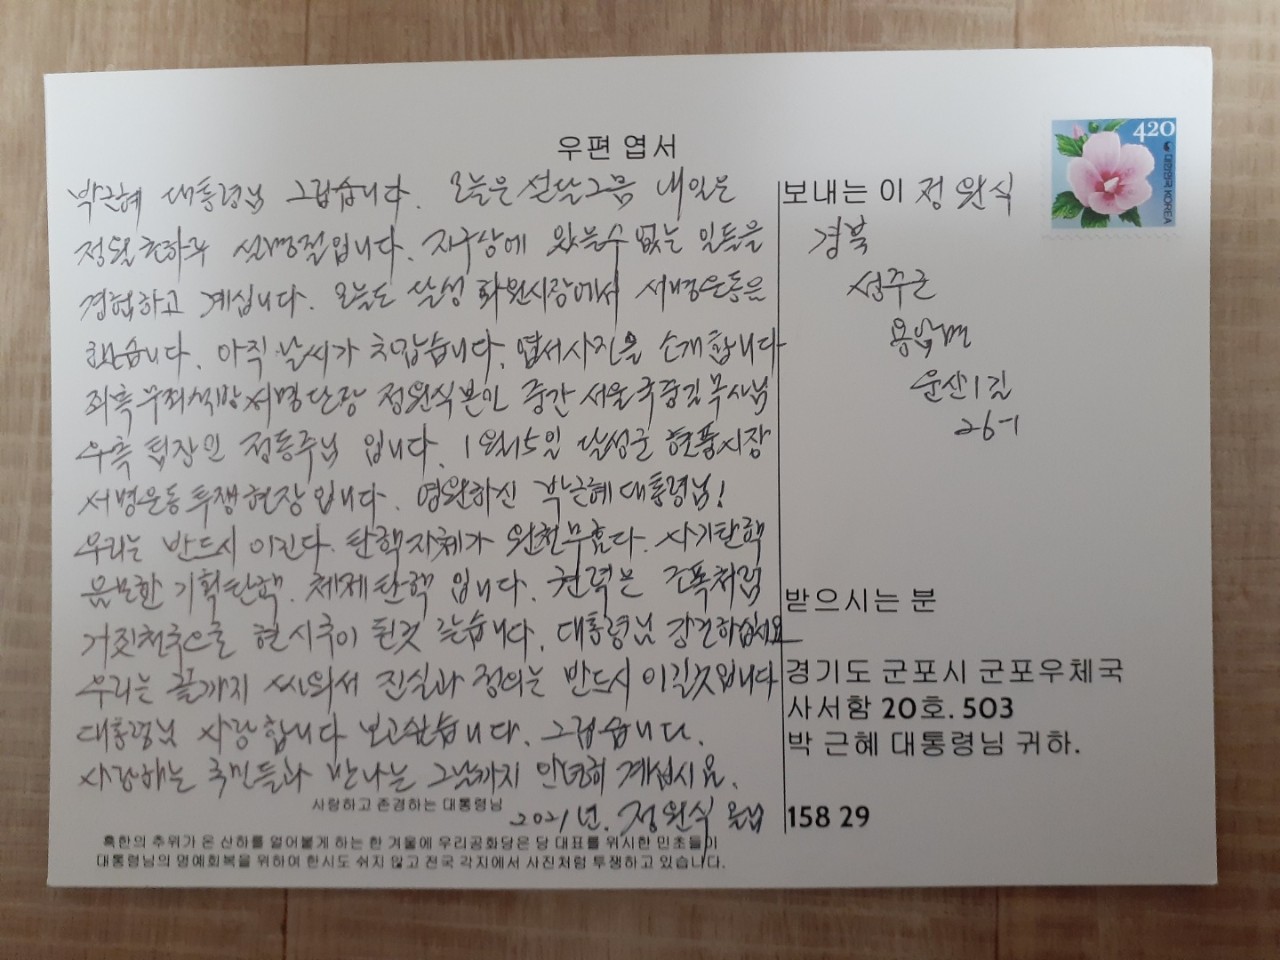 우편 엽서
420
대한민국 KOREA
박근혜 대통령님 그립습니다. 오늘은 섣달그믐 내일은
정월초하루 설명절입니다. 지구상에 있을수 없는 일들을
경험하고 계십니다. 오늘도 달성 화원시장에서 서명운동은
했습니다. 아직 날씨가 차갑습니다. 엽서사진을 소개합니다
좌측 무죄석방서명단장 정원식본인 중간 서울 국중길목사님
우측 팀장인 정동주님 입니다. 1월15일 달성군 현풍시장
서명운동투쟁현장입니다. 영원하신 박근혜대통령님!
우리는 반드시 이긴다. 탄핵자체가 원천무효다. 사기탄핵
음모한 기획탄핵. 체제탄핵 입니다. 권력은 조폭처럼
거짓천국으로 현시국이 된것 같습니다. 대통령님 강건하십시요
우리는 끝까지 싸워서 진실과 정의는 반드시 이길것입니다
대통령님 사랑합니다 보고싶습니다. 그립습니다.
사랑하는 국민들과 만나는 그날까지 안녕히 계십시요.
사랑하고 존경하는 대통령님
2021년. 정원식 올림
혹한의 추위가 온 산하를 얼어붙게 하는 한 겨울에 우리공화당은 당 대표를 위시한 민초들이
대통령님의 명예회복을 위하여 한시도 쉬지 않고 전국 각지에서 사진처럼 투쟁하고 있습니다.
보내는 이 정원식
경북
성주군
용암면
운산1길
26-1
받으시는 분
경기도 군포시 군포우체국
사서함 20호. 503
박 근혜 대통령님 귀하.
158 29